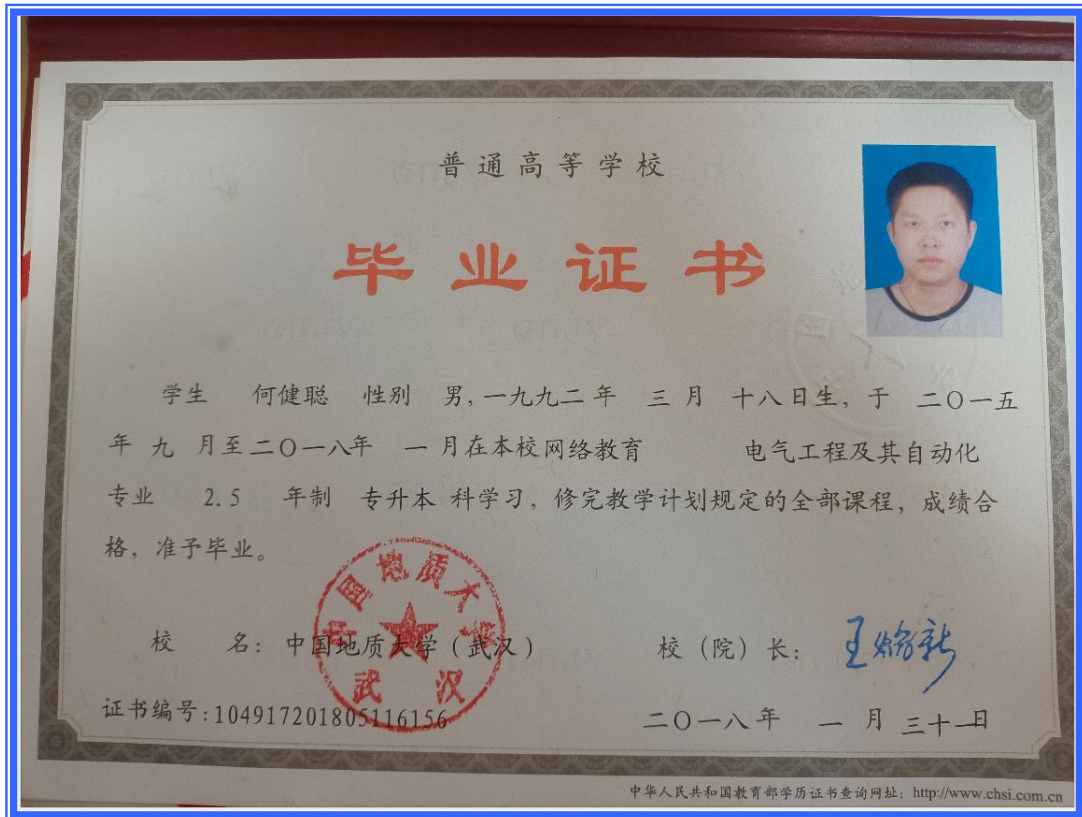 普通高等学校
毕业证书
学生 何健聪 性别 男,一九九二年 三月 十八日生,于 二〇一五
年 九 月至二〇一八年 一月在本校网络教育 电气工程及其自动化
专业 2.5 年制 专升本 科学习,修完教学计划规定的全部课程,成绩合
格,准予毕业。
中国地质大学
武汉
校 名:中国地质大学(武汉) 校(院)长:王焰新
证书编号:104917201805116156 二〇一八年 一 月 三十一日
中华人民共和国教育部学历证书查询网址:http://www.chsi.com.cn